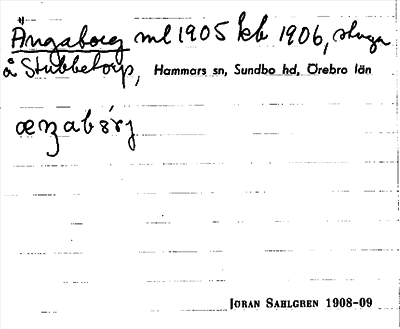 Ängaborg ml 1905 kb 1906, stuga
å Stubbetorp, Hammars sn, Sundbo hd, Örebro län
æŋabórj
JÖRAN SAHLGREN 1908-09